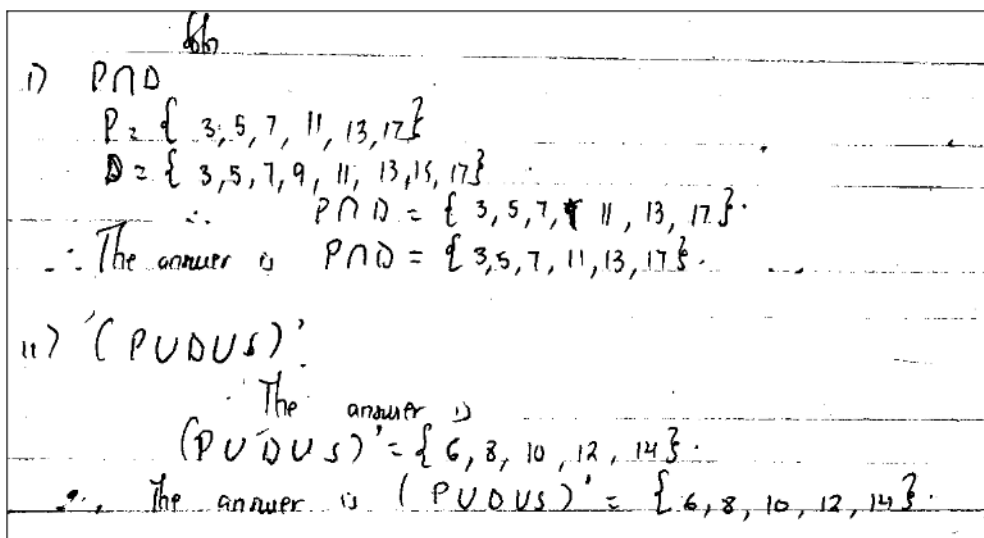 Soln
i) P∩D
P = { 3, 5, 7, 11, 13, 17}
D = { 3, 5, 7, 9, 11, 13, 15, 17}
∴ P∩D = { 3, 5, 7, 11, 13, 17}.
∴ The answer is P∩D = { 3, 5, 7, 11, 13, 17}.
ii) (P∪D∪S)'
The answer is
(P∪D∪S)' = { 6, 8, 10, 12, 14}.
∴ The answer is (P∪D∪S)' = { 6, 8, 10, 12, 14}.